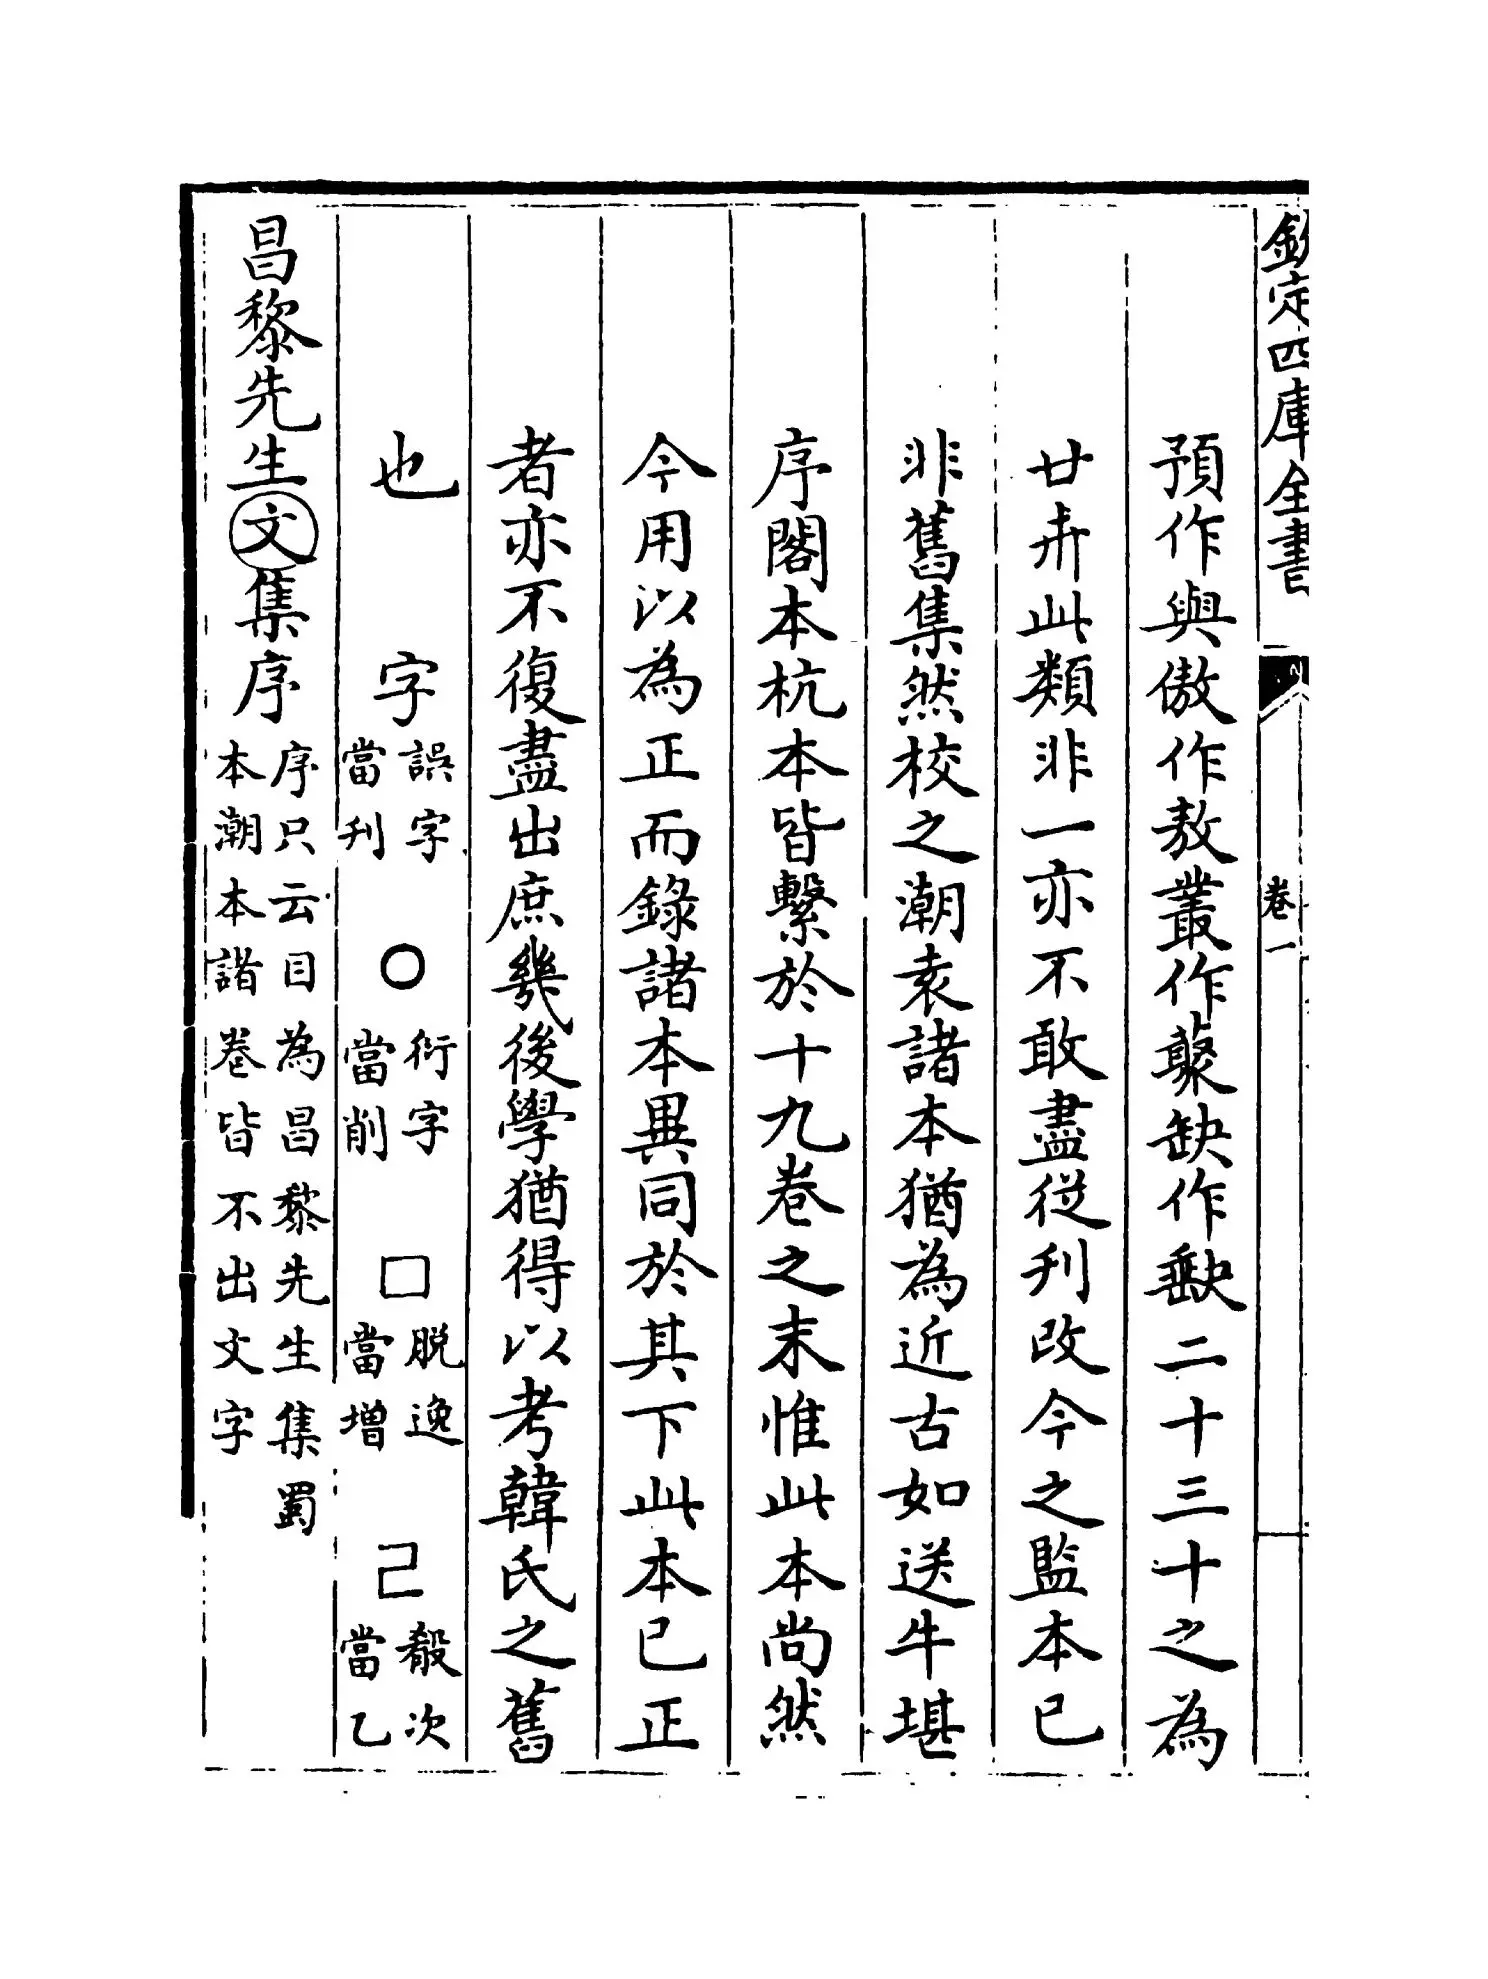 欽定四庫全書
卷一
預作與傲作敖叢作藂缺作𡙇二十三十之為
廿卅此類非一亦不敢盡從刋改今之監本已
非舊集然校之潮袁諸本猶為近古如送牛堪
序閣本杭本皆繫於十九卷之末惟此本尚然
今用以為正而錄諸本異同於其下此本已正
者亦不復盡出庶幾後學猶得以考韓氏之舊
也
字誤字當刋 〇衍字當削 □脱逸當增 己殽次當乙
昌黎先生文集序序只云目為昌黎先生集蜀
本潮本諸卷皆不出文字